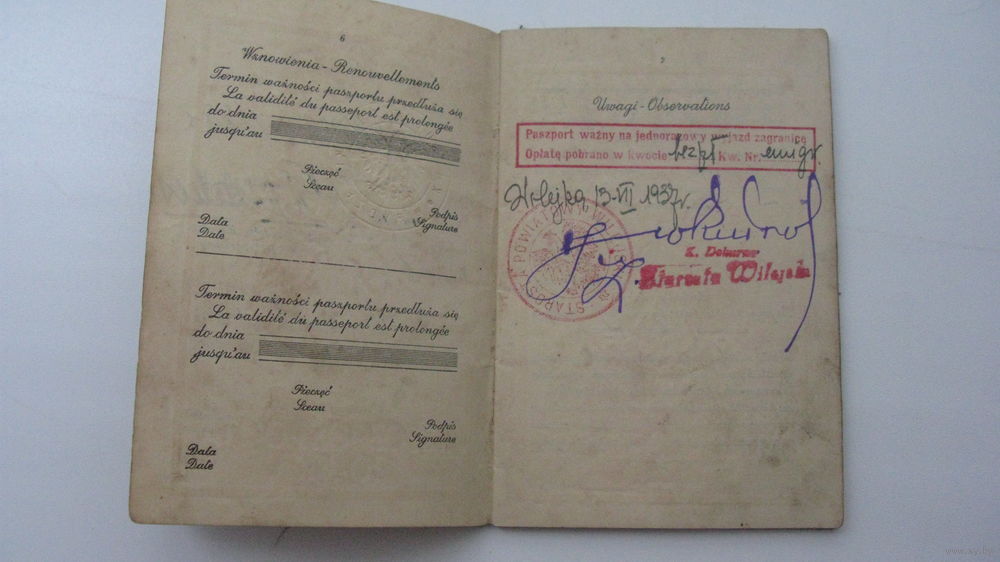 6
Wznowienia - Renouvellements
Termin ważności paszportu przedłuża się
La validité du passeport est prolongée
do dnia
jusqu'au
Pieczęć
Sceau
Podpis
Signature
Data
Date
Termin ważności paszportu przedłuża się
La validité du passeport est prolongée
do dnia
jusqu'au
Pieczęć
Sceau
Podpis
Signature
Data
Date
7
Uwagi - Observations
Paszport ważny na jednorazowy wyjazd zagranicę
Opłatę pobrano w kwocie bezpł Kw. Nr. emigr.
Wilejka 13-VII 1937r.
STAROSTA POWIATOWY
Starosta Wilejski
www.ay.by